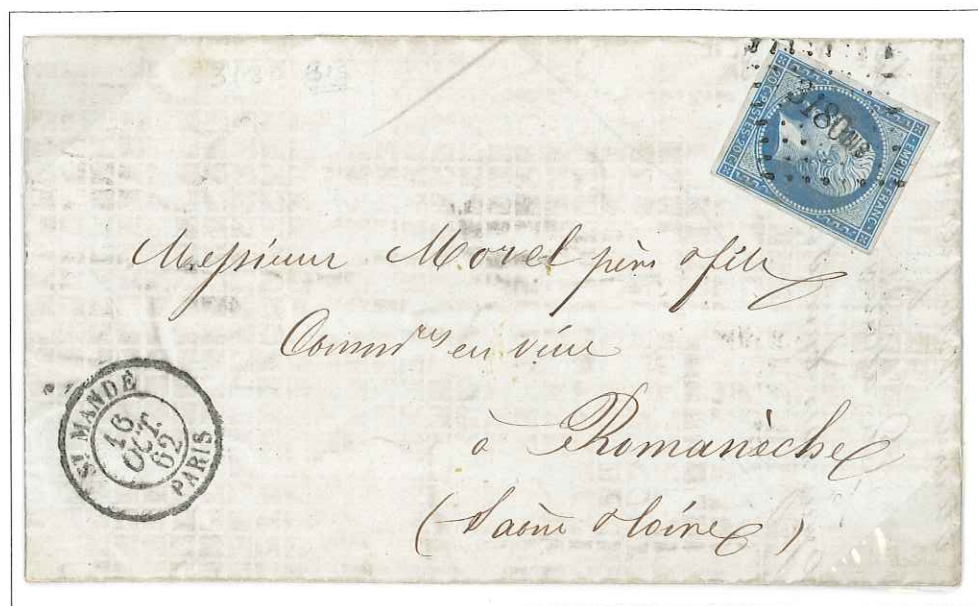 3180 BIS
20 C. POSTES 20 C.
EMPIRE FRANC.
3180 BIS
Messieurs Morel père & fils
Commres en vins
à Romanèche
(Saône & Loire)
ST MANDÉ
16
OCT.
62
PARIS